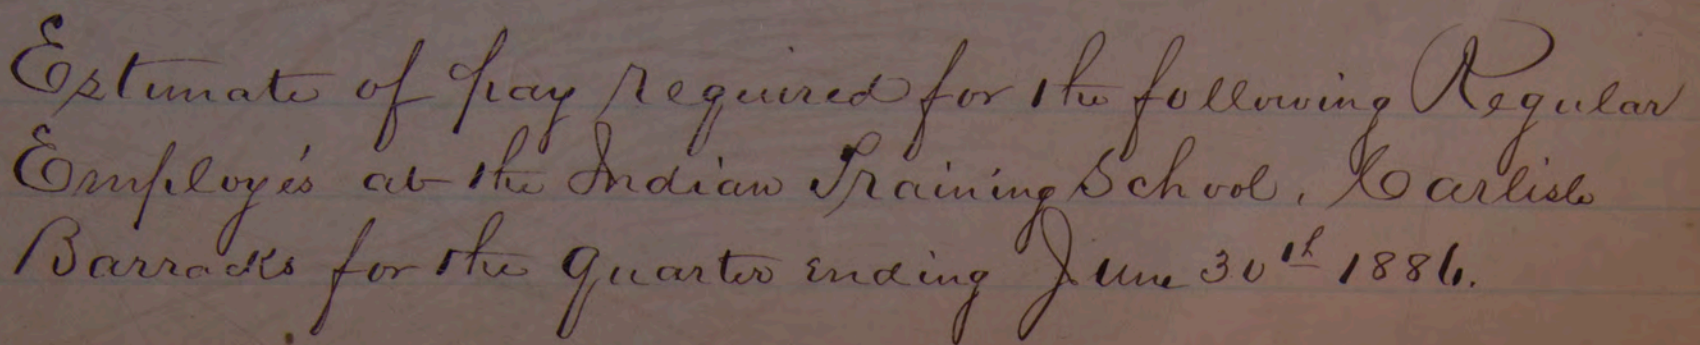 Estimate of pay required for the following Regular
Employés at the Indian Training School, Carlisle
Barracks for the Quarter ending June 30th 1886.